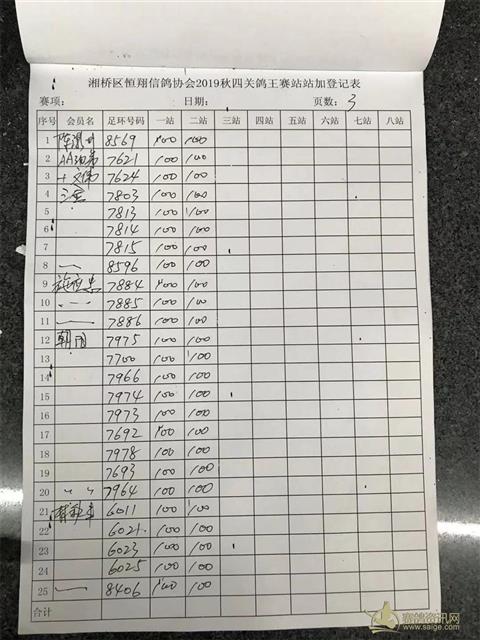 湘桥区恒翔信鸽协会2019秋四关鸽王赛站站加登记表
赛项: 日期: 页数: 3
序号 会员名 足环号码 一站 二站 三站 四站 五站 六站 七站 八站
1 8569 100 100
2 7621 100 100
3 7624 100 100
4 7803 100 100
5 7813 100 100
6 7814 100 100
7 7815 100 100
8 8596 100 100
9 7884 100 100
10 7885 100 100
11 7886 100 100
12 7975 100 100
13 7700 100 100
14 7966 100 100
15 7974 100 100
16 7973 100 100
17 7692 100 100
18 7978 100 100
19 7693 100 100
20 〃 〃 7964 100 100
21 6011 100 100
22 6021 100 100
23 6023 100 100
24 6025 100 100
25 8406 100 100
合计
赛鸽资讯网
www.saige.com